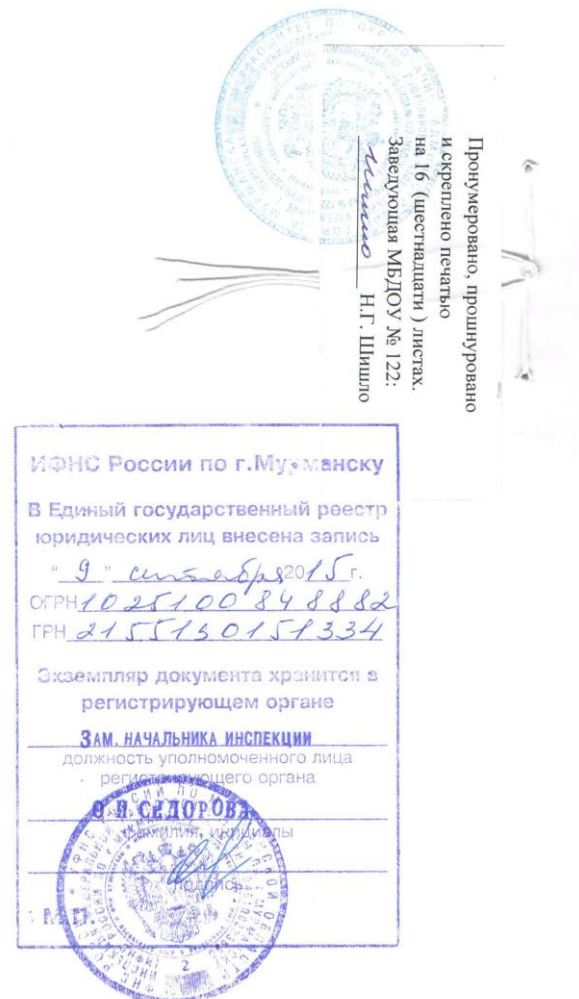 Пронумеровано, прошнуровано
и скреплено печатью
на 16 (шестнадцати ) листах.
Заведующая МБДОУ № 122:
Н.Г. Шишло
ИФНС России по г.Мурманску
В Единый государственный реестр
юридических лиц внесена запись
" 9 " сентября 2015 г.
ОГРН 1025100848882
ГРН 2155190151334
Экземпляр документа хранится в
регистрирующем органе
ЗАМ. НАЧАЛЬНИКА ИНСПЕКЦИИ
должность уполномоченного лица
регистрирующего органа
О.Я.СЕДОРОВА
фамилия, инициалы
подпись
М.П.
2